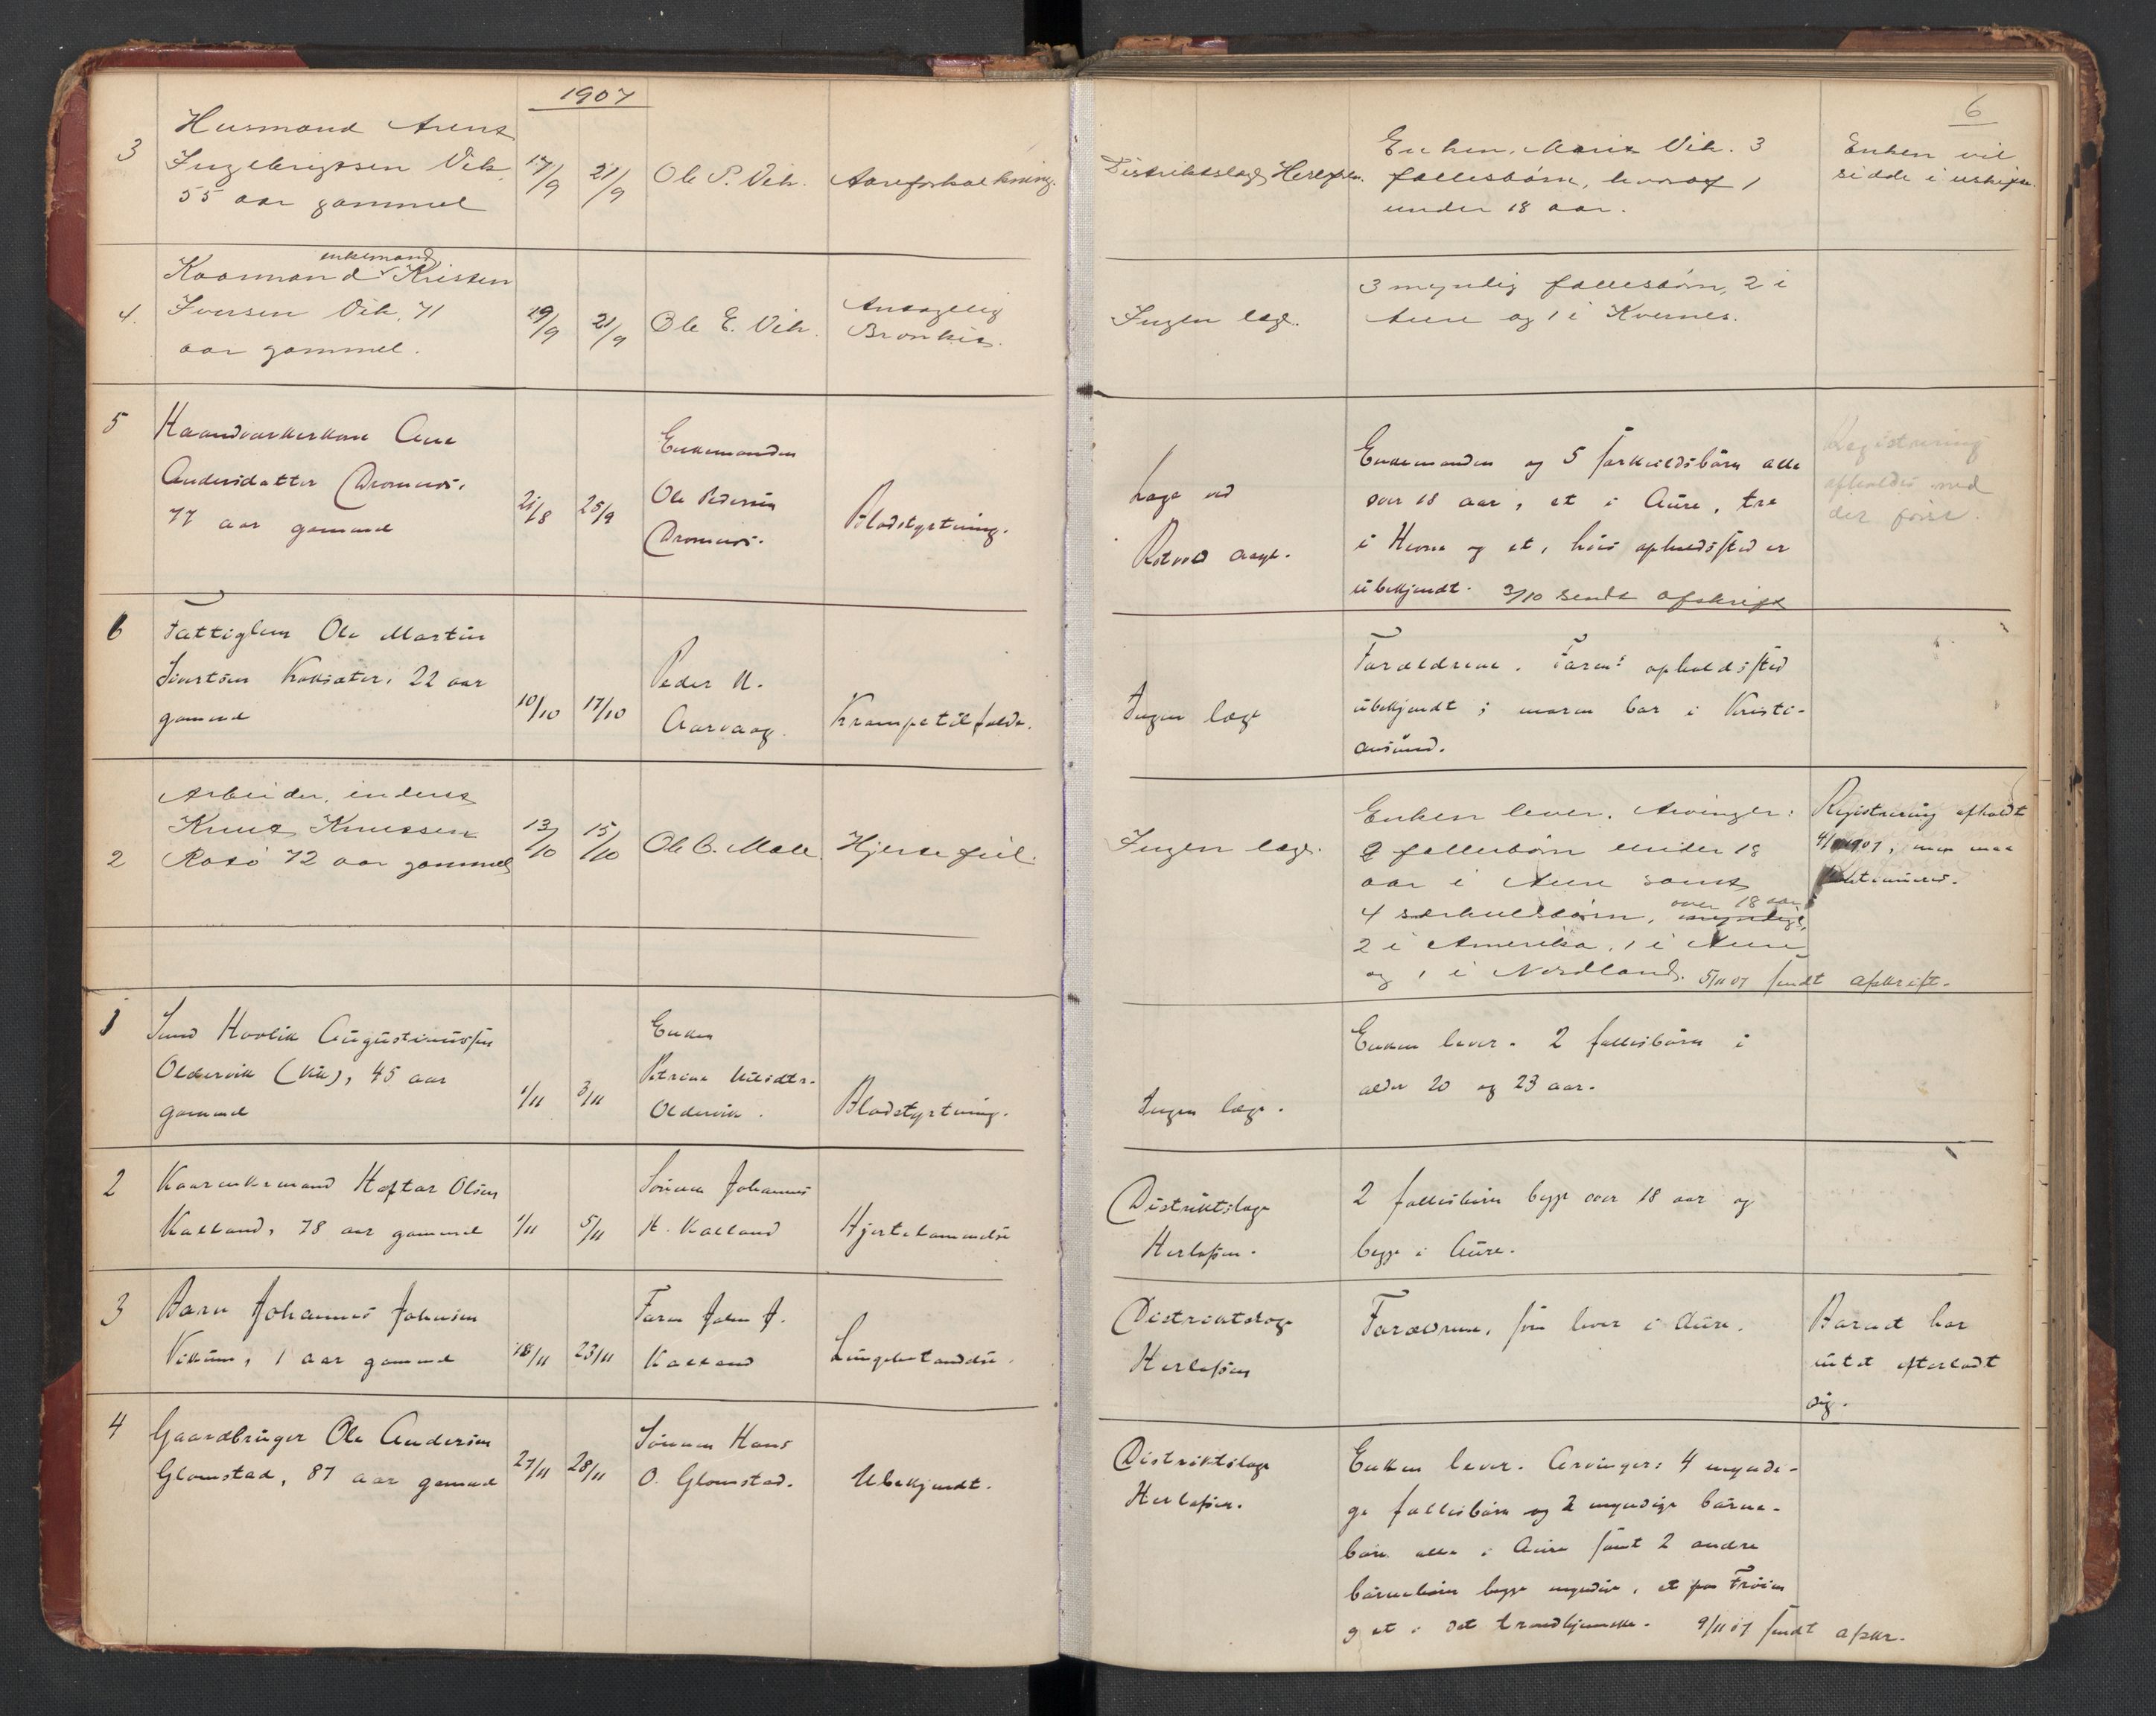 1907
6
3
Husmand Arent
Ingebrigtsen Vik
55 aar gammel
17/9
21/9
Ole P. Vik.
Aareforkalkning.
Distriktslæge Herlofsen.
Enken, Marit Vik. 3
fællesbörn, hvoraf 1
under 18 aar.
Enken vil
sidde i uskifte.
4.
enkemand
Kaarmand Kristen
Iversen Vik, 71
aar gammel.
19/9
21/9
Ole E. Vik.
Antagelig
Bronkit.
Ingen læge.
3 myndig fællesbörn, 2 i
Aure og 1 i Kvernes.
5
Haandværkerkone Ane
Andersdatter
77 aar gammel
21/8
25/9
Enkemanden
Ole Pedersen
Blodstyrtning.
Læge ved
Rotvold asyl.
Enkemanden og 5 særkuldsbörn alle
over 18 aar, et i Aure, tre
i Hevne og et, hvis opholdssted er
ubekjendt. 3/10 sendt afskrift
Registrering
afholdes med
det förste.
6
Fattiglem Ole Martin
Sivertsen 22 aar
gammel
10/10
17/10
Peder N.
Aarvaag.
Krampetilfælde.
Ingen læge
Forældrene. Faren's opholdssted
ubekjendt; moren bor i Kristi-
ansund.
2
Arbeider, inderst
Knut Knutsen
Rosö 72 aar gammel
13/10
15/10
Ole O. Moll.
Hjertefeil.
Ingen læge.
Enken lever. Arvinger:
2 fællesbörn under 18
aar i Aure samt
over 18 aar
4 særkulsbörn, myndige,
2 i Amerika, 1 i Aure
og 1 i Nordland. 5/11 07 sendt afskrift.
Registrering afholdt
1907, men maa
kontinueres.
1
Sund Hovlik Augustinussen
Oldervik (Vik), 45 aar
gammel
1/11
3/11
Enken
Petrine Nilsdtr.
Oldervik.
Blodstyrtning.
Ingen læge.
Enken lever. 2 fællesbörn i
alder 20 og 23 aar.
2
Kaarenkemand Hoftar Olsen
Kalland, 78 aar gammel
1/11
5/11
Sönnen Johannes
H. Kalland
Hjertelammelse
Distriktslæge
Herlofsen.
2 fællesbörn begge over 18 aar og
begge i Aure.
3
Barn Johannes Johnsen
1 aar gammel
18/11
23/11
Faren John J.
Kalland
Lungebetændelse.
Distriktslæge
Herlofsen
Forældrene, som lever i Aure.
Barnet har
intet efterladt
sig.
4
Gaardbruger Ole Andersen
Glomstad, 87 aar gammel
27/11
28/11
Sönnen Hans
O. Glomstad.
Ubekjendt.
Distriktslæge
Herlofsen.
Enken lever. Arvinger: 4 myndi-
ge fællesbörn og 2 myndige börne-
börn alle i Aure samt 2 andre
börnebörn begge myndige, et paa Fröien
og et i det trondhjemske. 9/11 07 sendt afskr.